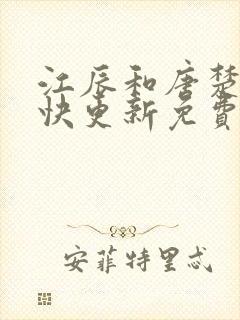 江辰和唐楚
快更新免費
安菲特里忒